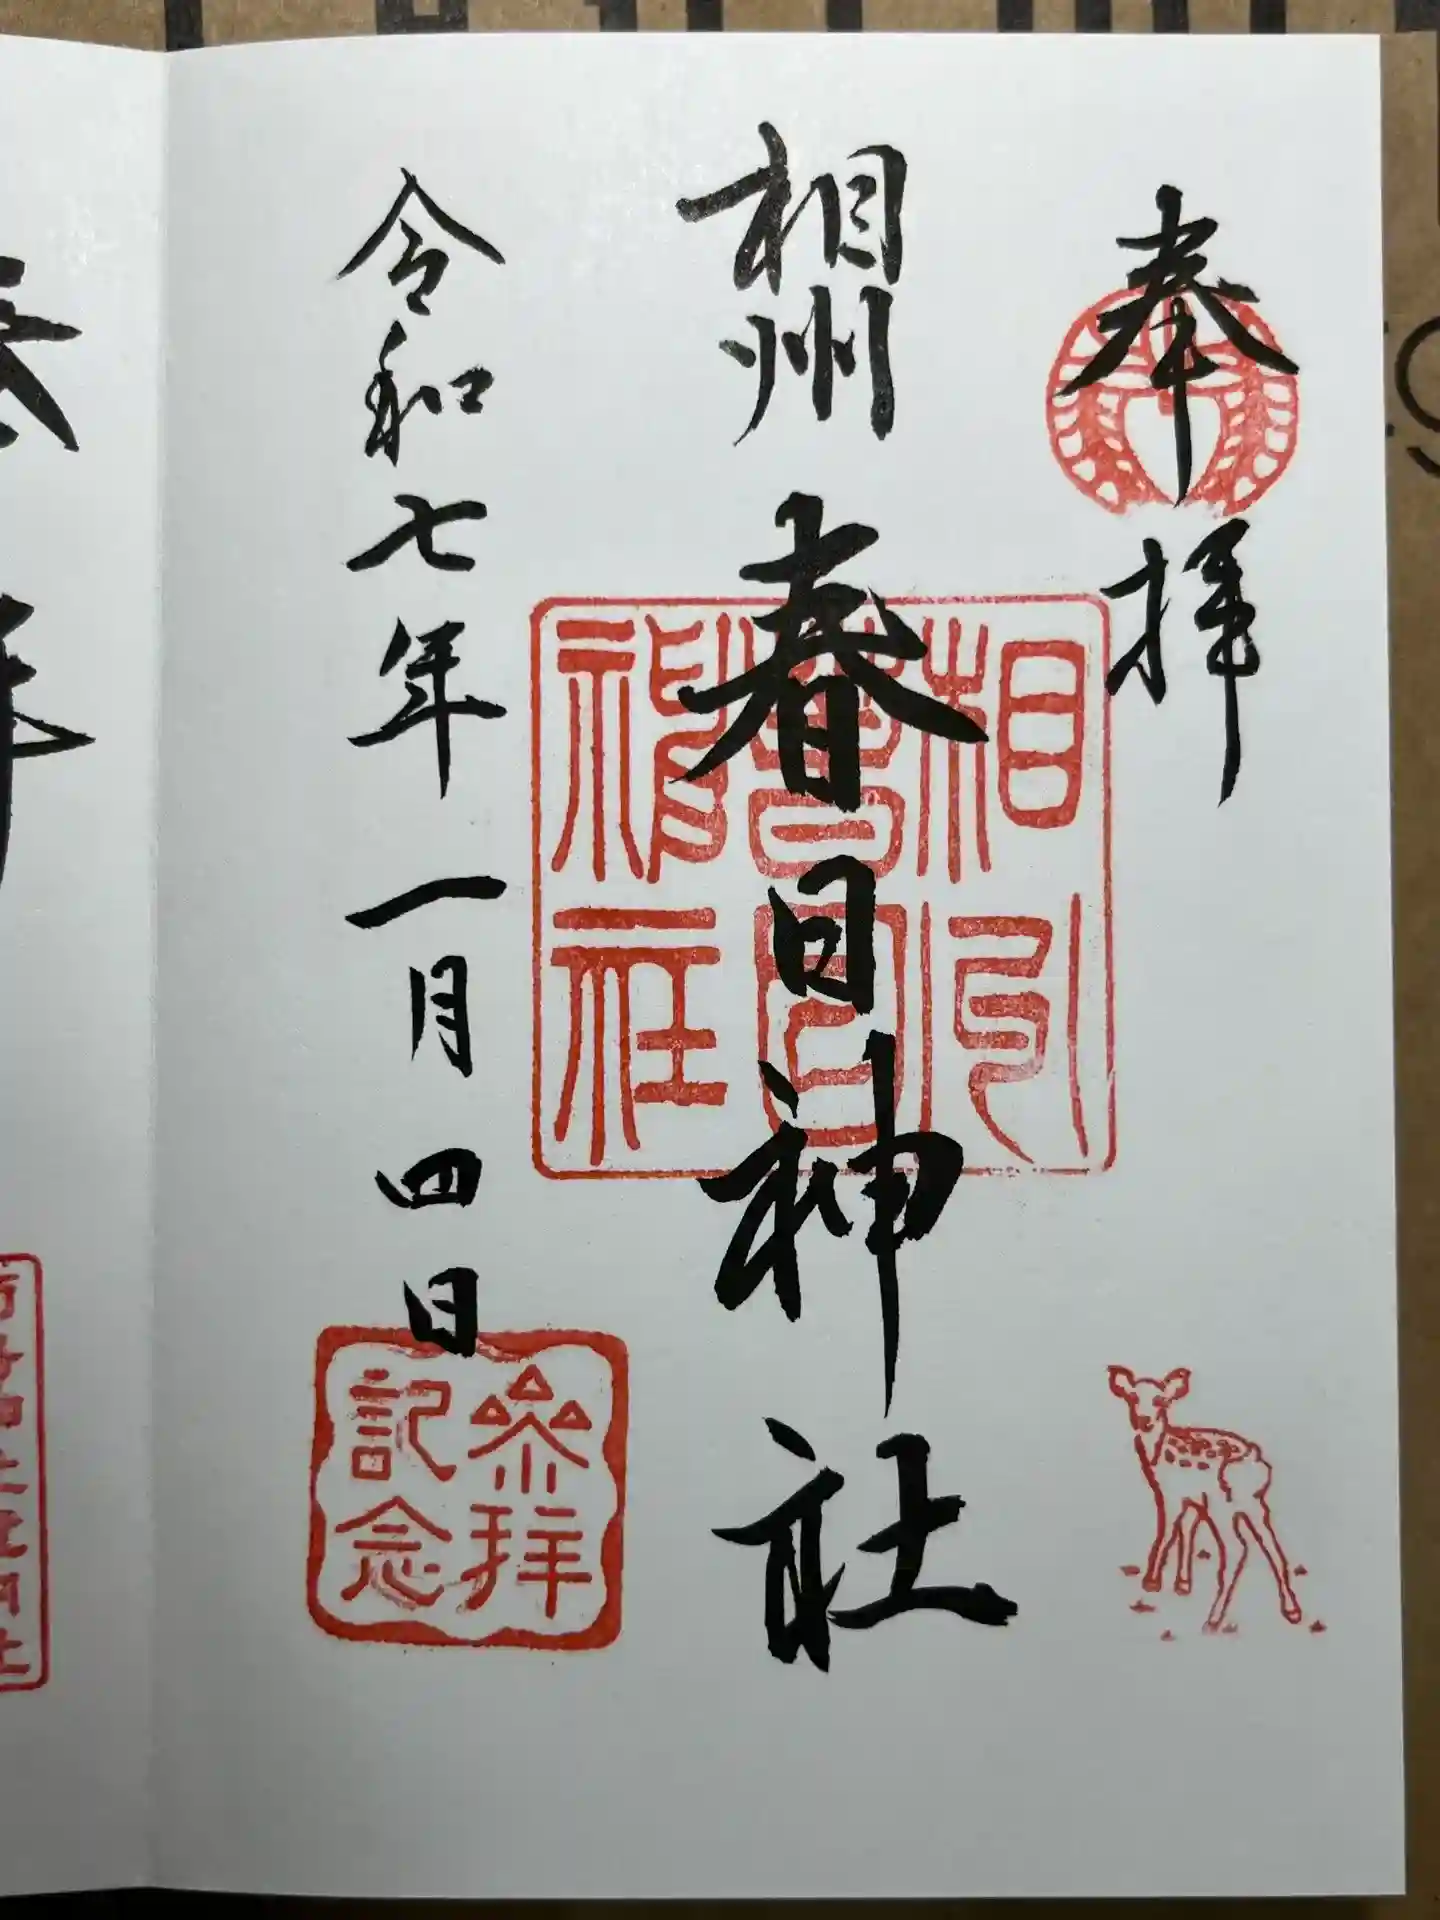 奉拝
相州春日神社
相州春日神社
令和七年一月四日
参拝記念